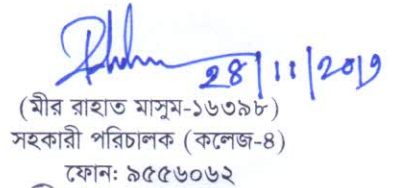 28/11/2019
(মীর রাহাত মাসুম-১৬৩৯৮)
সহকারী পরিচালক (কলেজ-৪)
ফোন: ৯৫৫৬০৬২